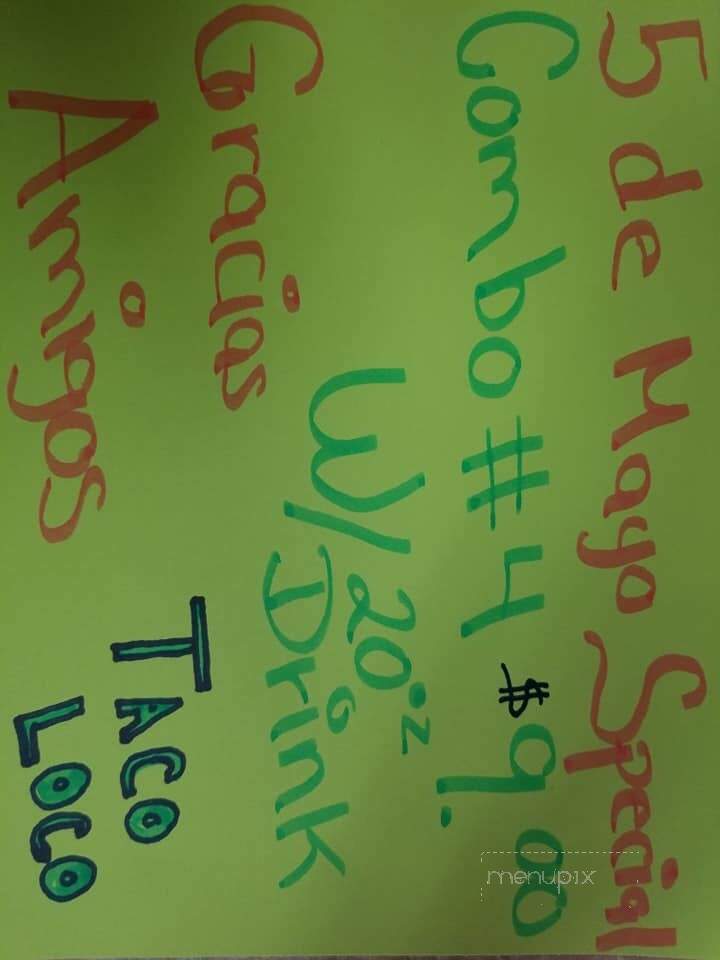 5 de Mayo Special
Combo #4 $9.00
W/20oz
Drink
Gracias
Amigos
TACO
LOCO
menupix